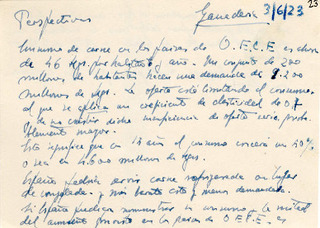 Perspectivas
Ganaderia 3/6/23
23
Consumo de carne en los paises de O.E.C.E. es ahora
de 46 kgs. por habitante y año. Un conjunto de 200
millones de habitantes hacen una demanda de 9.200
millones de kgs. La oferta está limitando el consumo
al que se aplica un coeficiente de elasticidad de 0,7
de no existir dicha insuficiencia de oferta sería proba-
blemente mayor.
Esto significa que en años el consumo crecerá un 50%
o sea en 4.600 millones de kgs.
España podría enviar carne refrigerada en lugar
de congelada y más barata esta y menos demandada.
Si España pudiera suministrar el consumo la mitad
del aumento previsto en los paises de O.E.C.E. es